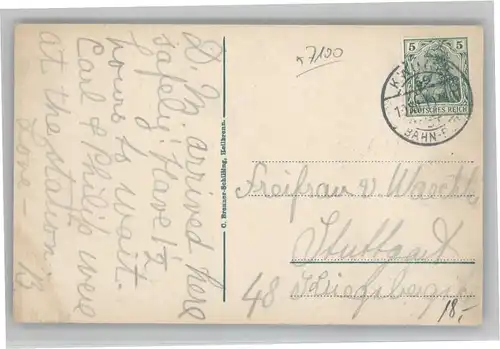 D. M. arrived here
safely. Have 1½
hours to wait.
Carl & Philip were
at the station.
Love – B
C. Brunner-Schilling, Heilbronn.
7190
5 5
DEUTSCHES REICH
BAHN-P
Freifrau v.
Stuttgart
48
18,-